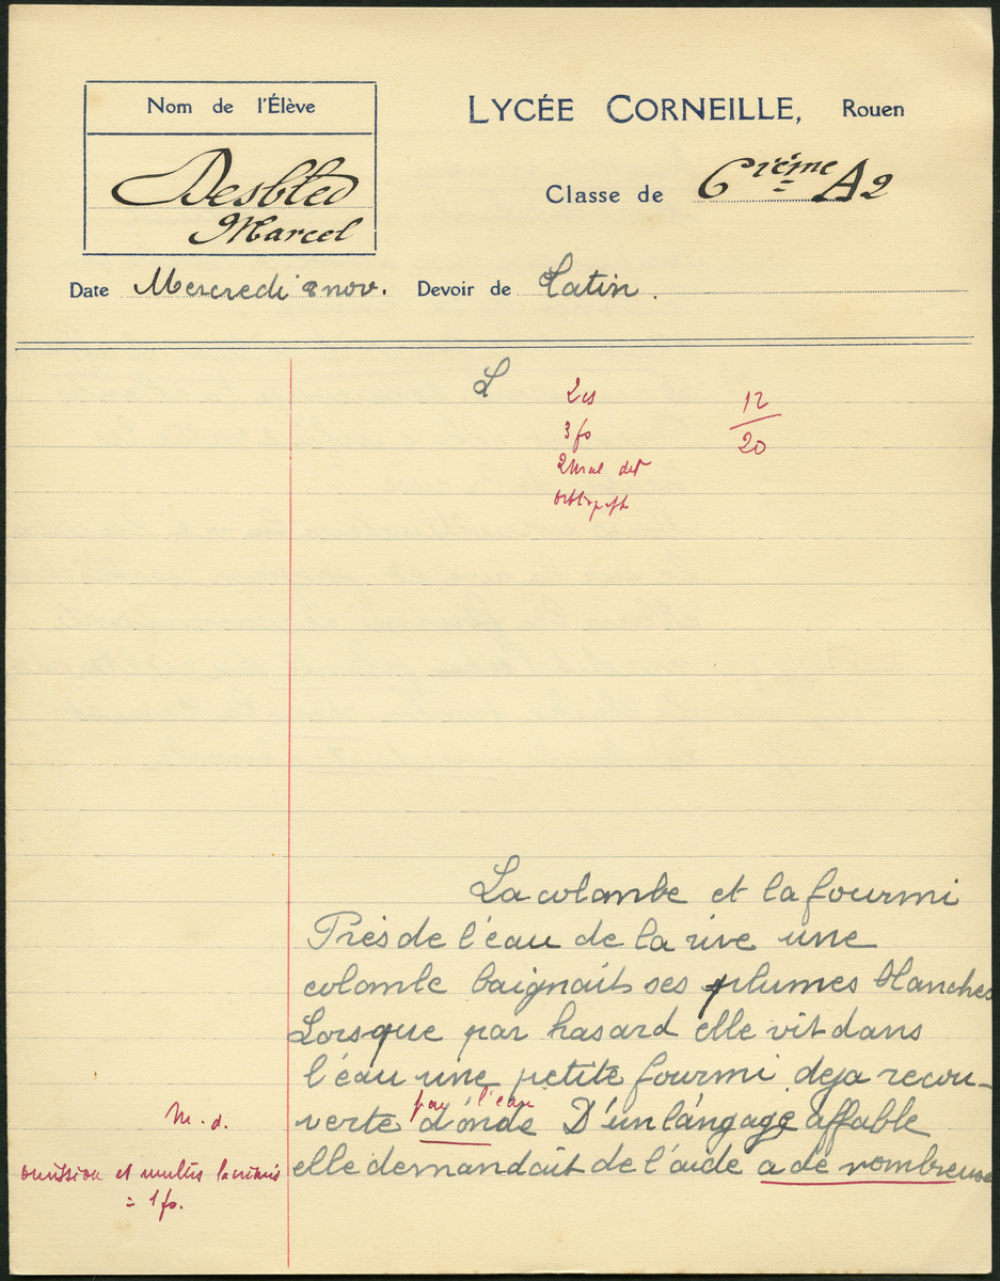 Nom de l'Élève
LYCÉE CORNEILLE, Rouen
Desbled
Marcel
Classe de 6ième A2
Date Mercredi 8 nov. Devoir de Latin.
L
2cs
3fs
2 mal dit
12
20
La colombe et la fourmi
Près de l'éau de la rive une
colombe baignait ses plumes blanches
Lorsque par hasard elle vit dans
l'éau une petite fourmi deja recou-
par l'eau
m.d.
verte d'onde D'un langage affable
elle demandait de l'aide a de nombreuse
omission et multis lacrimis
= 1 fs.